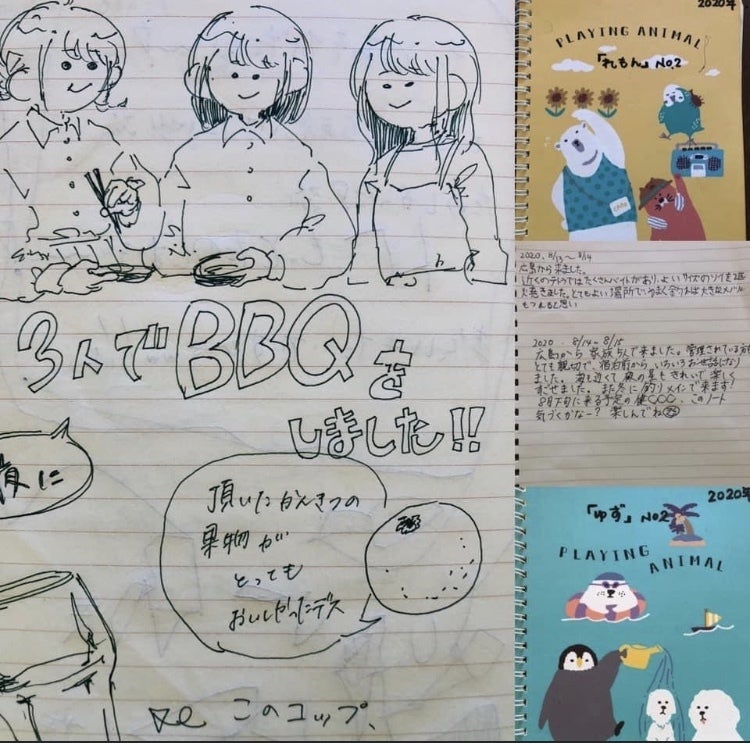 3人でBBQを
しました!!
夜に
頂いたかんきつの
果物が
とっても
おいしかったデス
このコップ、
2020年
PLAYING ANIMAL
「れもん」 No.2
2020. 8/13~8/14
広島から来ました。
とてもよい場所で
2020 8/14~8/15
広島から家族5人で来ました。管理されている方も
とても親切で、宿泊前からいろいろお世話になり
ました。海も近くて風の音もきれいで楽しく
すごせました。また冬に釣りメインで来ます?
8月下旬に来る予定の健○○○、このノート
気づくかなー? 楽しんでね
2020年
「ゆず」 No.2
PLAYING
ANIMAL